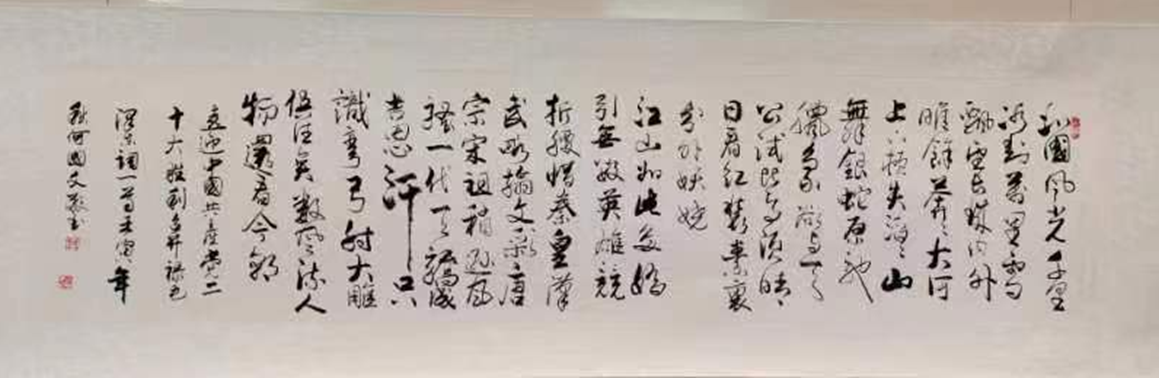 北國風光千里
冰封萬里雪
飄望長城內外
唯餘莽莽大河
上下頓失滔滔山
舞銀蛇原馳
蠟象欲與天
公試比高須晴
日看紅裝素裹
分外妖嬈
江山如此多嬌
引無數英雄競
折腰惜秦皇漢
武略輸文彩唐
宗宋祖稍遜風
騷一代天驕成
吉思汗只
識彎弓射大雕
俱往矣數風流人
物還看今朝
喜迎中國共產黨二
十大勝利召開錄毛
澤東詞一首壬寅年
秋何國文敬書